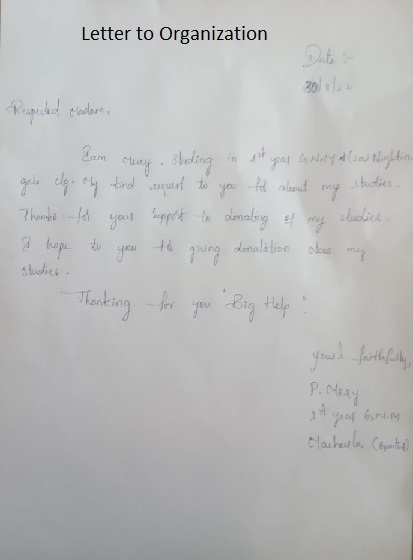 Letter to Organization
Date :-
30/8/22
Respected Madam,
I am Mery. Studing in 1st year G.N.M
gale clg. My kind request to you for about my studies.
Thanks for your Support to donating of my studies.
I hope to you for giving donalation my
studies.
Thanking for you "Big Help".
your's faithfully,
P. Mery
1st year G.N.M